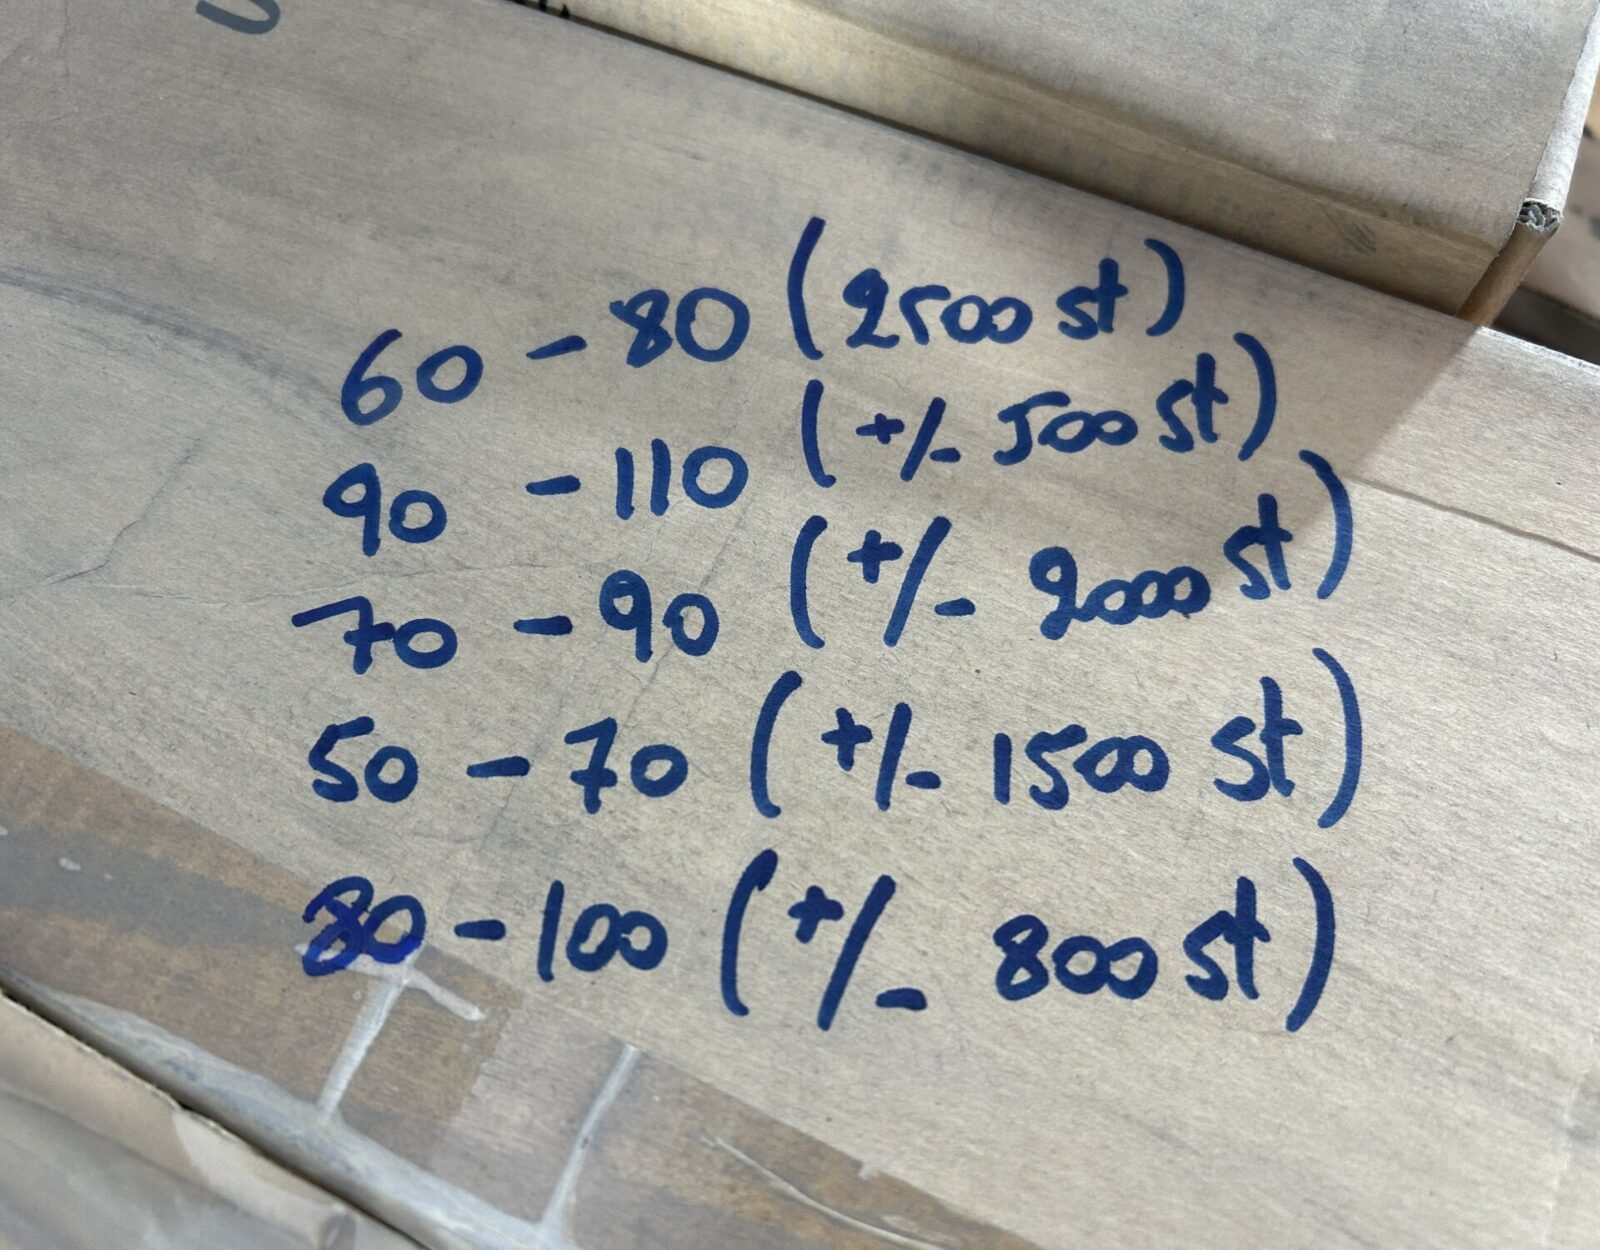 60 - 80 (2500 st)
90 - 110 (+/- 500 st)
70 - 90 (+/- 2000 st)
50 - 70 (+/- 1500 st)
80 - 100 (+/- 800 st)